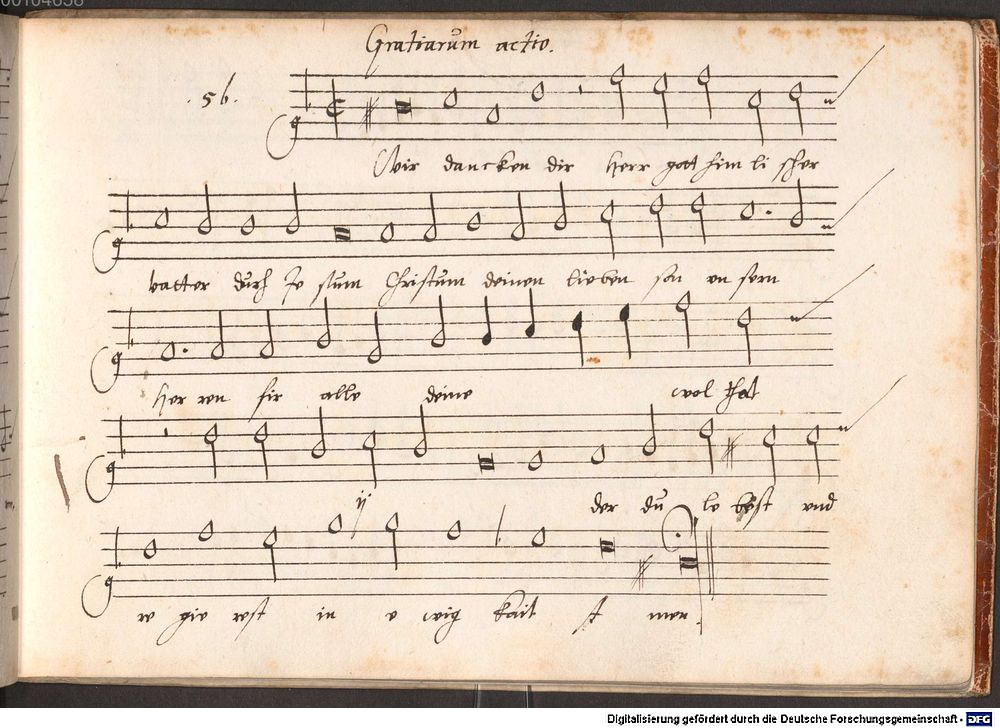 00104658
Gratiarūm actio.
.56.
Wir dancken dir Herr gott him li scher
vatter dūrch Je sūm Christūm deinen lieben son vn sern
Her ren fir alle deine wol that
ij der dū le best vnd
re gie rest in e wig kait A men.
Digitalisierung gefördert durch die Deutsche Forschungsgemeinschaft - DFG